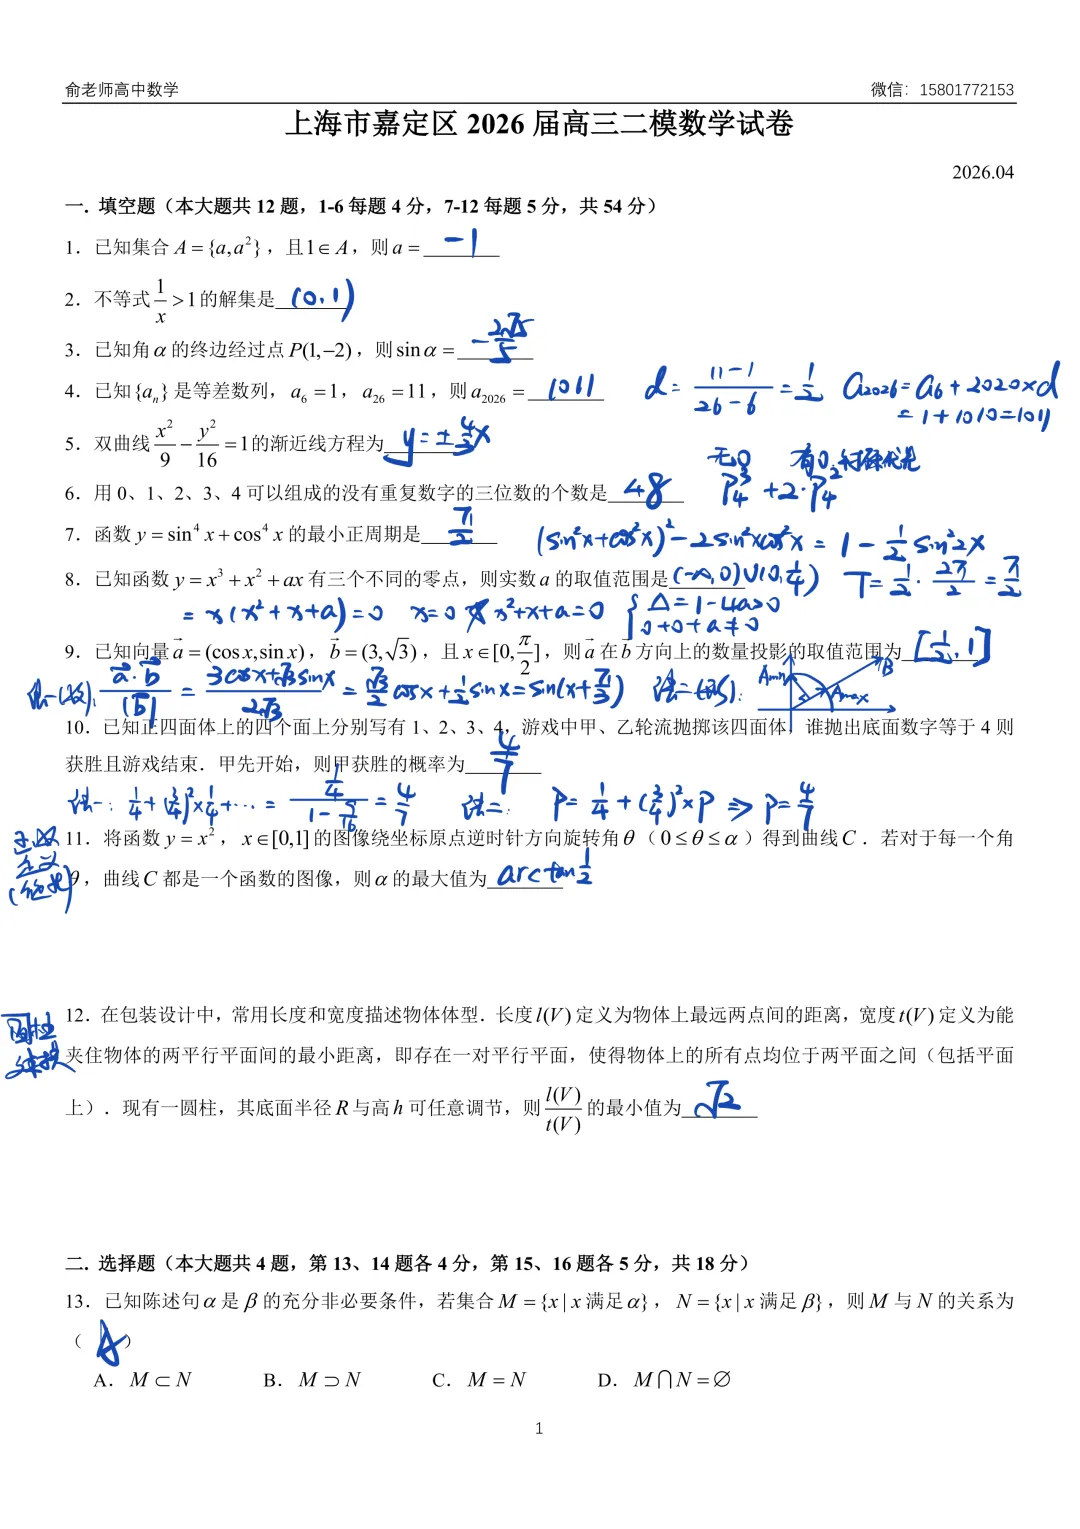 俞老师高中数学 微信：15801772153
上海市嘉定区 2026 届高三二模数学试卷
2026.04
一．填空题（本大题共 12 题，1-6 每题 4 分，7-12 每题 5 分，共 54 分）
1．已知集合 A = {a, a²}，且1∈A，则 a = -1
2．不等式 1/x > 1 的解集是 (0,1)
3．已知角 α 的终边经过点 P(1,−2)，则 sin α = -2√5/5
4．已知{aₙ} 是等差数列，a₆ = 1，a₂₆ = 11，则 a₂₀₂₆ = 1011 d = (11-1)/(26-6) = 1/2 a₂₀₂₆ = a₆ + 2020×d
= 1+1010=1011
5．双曲线 x²/9 − y²/16 = 1 的渐近线方程为 y=±4/3x
无0 有0
6．用 0、1、2、3、4 可以组成的没有重复数字的三位数的个数是 48 P₄³ + 2·P₄²
7．函数 y = sin⁴ x + cos⁴ x 的最小正周期是 π/2 (sin²x+cos²x)² - 2sin²xcos²x = 1 - 1/2 sin²2x
8．已知函数 y = x³ + x² + ax 有三个不同的零点，则实数 a 的取值范围是 (-∞,0)∪(0,1/4) T = 1/2 · 2π/2 = π/2
= x(x²+x+a)=0 x=0 或 x²+x+a=0 { Δ=1-4a>0
0+0+a≠0
9．已知向量 a = (cos x, sin x)，b = (3, √3)，且 x∈[0, π/2]，则 a 在 b 方向上的数量投影的取值范围为 [1/2, 1]
法一(数): a·b/|b| = (3cosx+√3sinx)/2√3 = √3/2 cosx + 1/2 sinx = sin(x+π/3) 法二(形): Amin Amax B
10．已知正四面体上的四个面上分别写有 1、2、3、4，游戏中甲、乙轮流抛掷该四面体，谁抛出底面数字等于 4 则
获胜且游戏结束．甲先开始，则甲获胜的概率为 4/7
法一: 1/4 + (3/4)²×1/4 + ··· = (1/4)/(1-9/16) = 4/7 法二: P = 1/4 + (3/4)²×P ⇒ P = 4/7
11．将函数 y = x²，x∈[0,1] 的图像绕坐标原点逆时针方向旋转角 θ（0 ≤ θ ≤ α）得到曲线 C．若对于每一个角
θ，曲线 C 都是一个函数的图像，则 α 的最大值为 arctan 1/2
12．在包装设计中，常用长度和宽度描述物体体型．长度 l(V) 定义为物体上最远两点间的距离，宽度 t(V) 定义为能
夹住物体的两平行平面间的最小距离，即存在一对平行平面，使得物体上的所有点均位于两平面之间（包括平面
上）．现有一圆柱，其底面半径 R 与高 h 可任意调节，则 l(V)/t(V) 的最小值为 √2
二．选择题（本大题共 4 题，第 13、14 题各 4 分，第 15、16 题各 5 分，共 18 分）
13．已知陈述句 α 是 β 的充分非必要条件，若集合 M = {x | x 满足 α}，N = {x | x 满足 β}，则 M 与 N 的关系为
（ A ）
A．M ⊂ N B．M ⊃ N C．M = N D．M ⋂ N = ∅
1